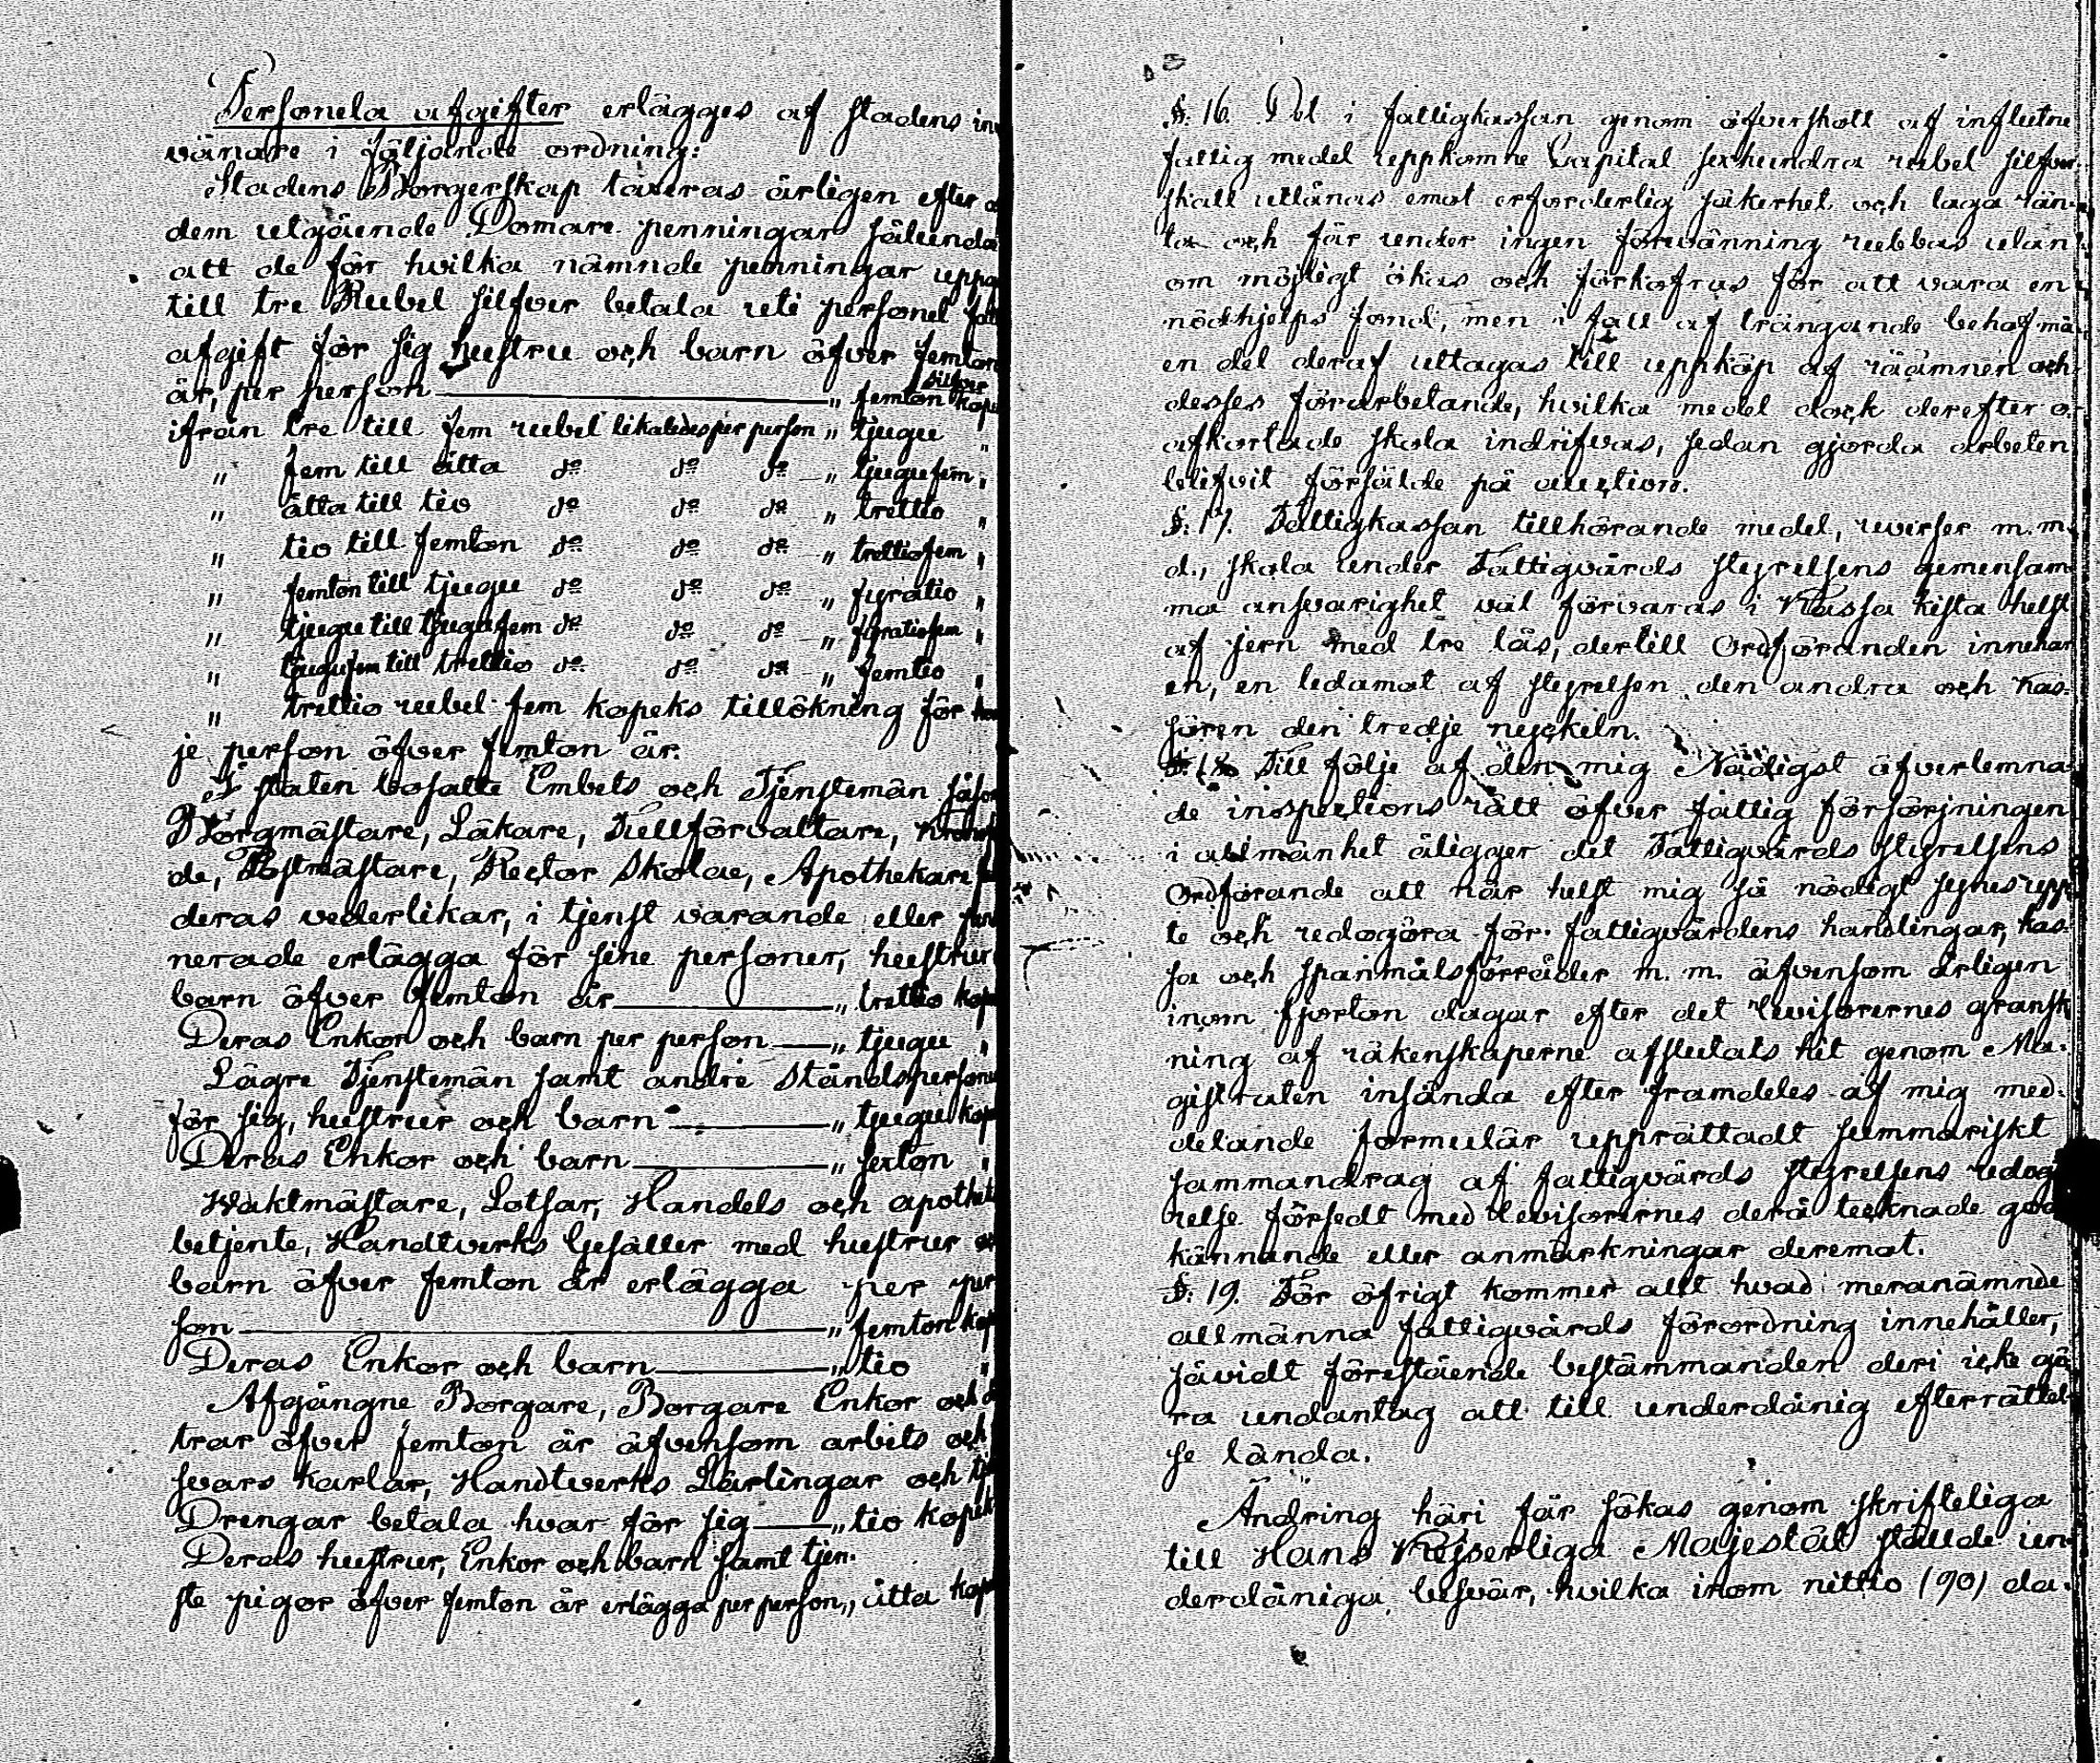 Personela afgifter erlägges af stadens in
vånare i följande ordning:
Stadens Borgerskap taxeras årligen efter
dem utgående Domare penningar sålunda
att de för hvilka nämnde penningar uppg
till tre Rubel silfver betala uti personel fatt
afgift för sig hustru och barn öfver femton
år, per person „ femton silfver kope
ifrån tre till fem rubel likaledes per person „ tjugu „
„ fem till åtta do do do „ tjugufem „
„ åtta till tio do do do „ trettio „
„ tio till femton do do do „ trettiofem „
„ femton till tjugu do do do „ fyratio „
„ tjugu till tjugufem do do do „ fyratiofem „
„ tjugufem till trettio do do do „ femtio „
„ trettio rubel fem kopeks tillökning för
je person öfver femton år.
I staten bosatte Embets och Tjenstemän såsom
Borgmästare, Läkare, Tullförvaltare,
de, Postmästare, Rector Skolae, Apothekare
deras vederlikar, i tjenst varande eller
nerade erlägga för sine personer, hustrur
barn öfver femton år „ trettio kope
Deras Enkor och barn per person „ tjugu „
Lägre Tjenstemän samt andre Ståndsperson
för sig, hustrur och barn „ tjugu kop
Deras Enkor och barn „ sexton „
Waktmästare, Lotsar, Handels och apothek
betjente, Handtverks Gesäller med hustrur
barn öfver femton år erlägga per per
son „ femton kop
Deras Enkor och barn „ tio „
Afgångne Borgare, Borgare Enkor och
trar öfver femton år äfvensom arbets och
svars karlar, Handtverks Lärlingar och
Drengar betala hvar för sig „ tio kopek
Deras hustrur, Enkor och barn samt tjen-
ste pigor öfver femton år erlägga per person „ åtta kop
§. 16. Det i fattigkassan genom öfverskott af influtne
fattig medel uppkomne Capital sexhundra rubel silfver
skall utlånas emot erforderlig säkerhet och laga rän-
ta och får under ingen förevänning rubbas utan
om möjligt ökas och förkofras för att vara en
nödhjelps fond, men i fall af trängande behof må
en del deraf uttagas till uppköp af räämnen och
desses förarbetande, hvilka medel dock derefter o-
afkortade skola indrifvas, sedan gjorda arbeten
blifvit försålde på auction.
§. 17. Fattigkassan tillhörande medel, reverser m.m.
d., skola under Fattigvårds styrelsens gemensam-
ma ansvarighet väl förvaras i Kassa kista helst
af jern med tre lås, dertill Ordföranden innehar
en, en ledamot af styrelsen den andra och Kas-
sören den tredje nyckeln.
§. 18. Till följe af den mig Nådigst öfverlemna-
de inspections rätt öfver fattig försörjningen
i allmänhet åligger det Fattigvårds styrelsens
Ordförande att när helst mig så nödigt synes upp
te och redogöra för fattigvårdens handlingar, kas-
sa och spanmålsförråder m. m. äfvensom årligen
inom fjorton dagar efter det Revisorernes gransk
ning af räkenskaperne afslutats hit genom Ma-
gistraten insända efter framdeles af mig med-
delande formulär upprättadt summariskt
sammandrag af fattigvårds styrelsens redogö
relse försedt med Revisorernes derå tecknade god
kännande eller anmärkningar deremot.
§. 19. För öfrigt kommer allt hvad meranämnde
allmänna fattigvårds förordning innehåller,
såvidt förestående bestämmanden deri icke gö
ra undantag att till underdånig efterrättel-
se lända.
Ändring häri får sökas genom skrifteliga
till Hans Kejserliga Majestät ställde un-
derdåniga besvär, hvilka inom nittio (90) da-